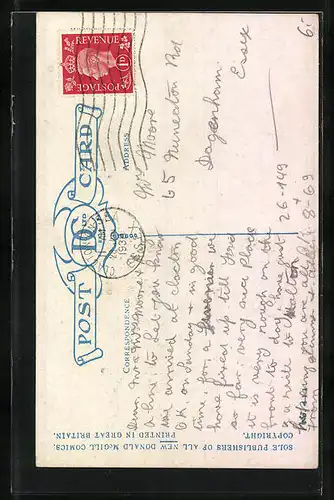 POST CARD
CORRESPONDENCE
ADDRESS
SOLE PUBLISHERS OF ALL NEW DONALD McGILL COMICS.
COPYRIGHT. PRINTED IN GREAT BRITAIN.
POSTAGE
REVENUE
1D
6.-
Mrs Moore
65 Nuneaton Rd
Dagenham.
Essex
26-149
8-63
Dear Mr & Mrs Moore
Just a line to let you know
we arrived at Clacton
OK on Sunday & in good
time, for a
have fixed up till
so far. very nice Place
it is very rough on the
front to day have just
a walk to
hoping you are all
from